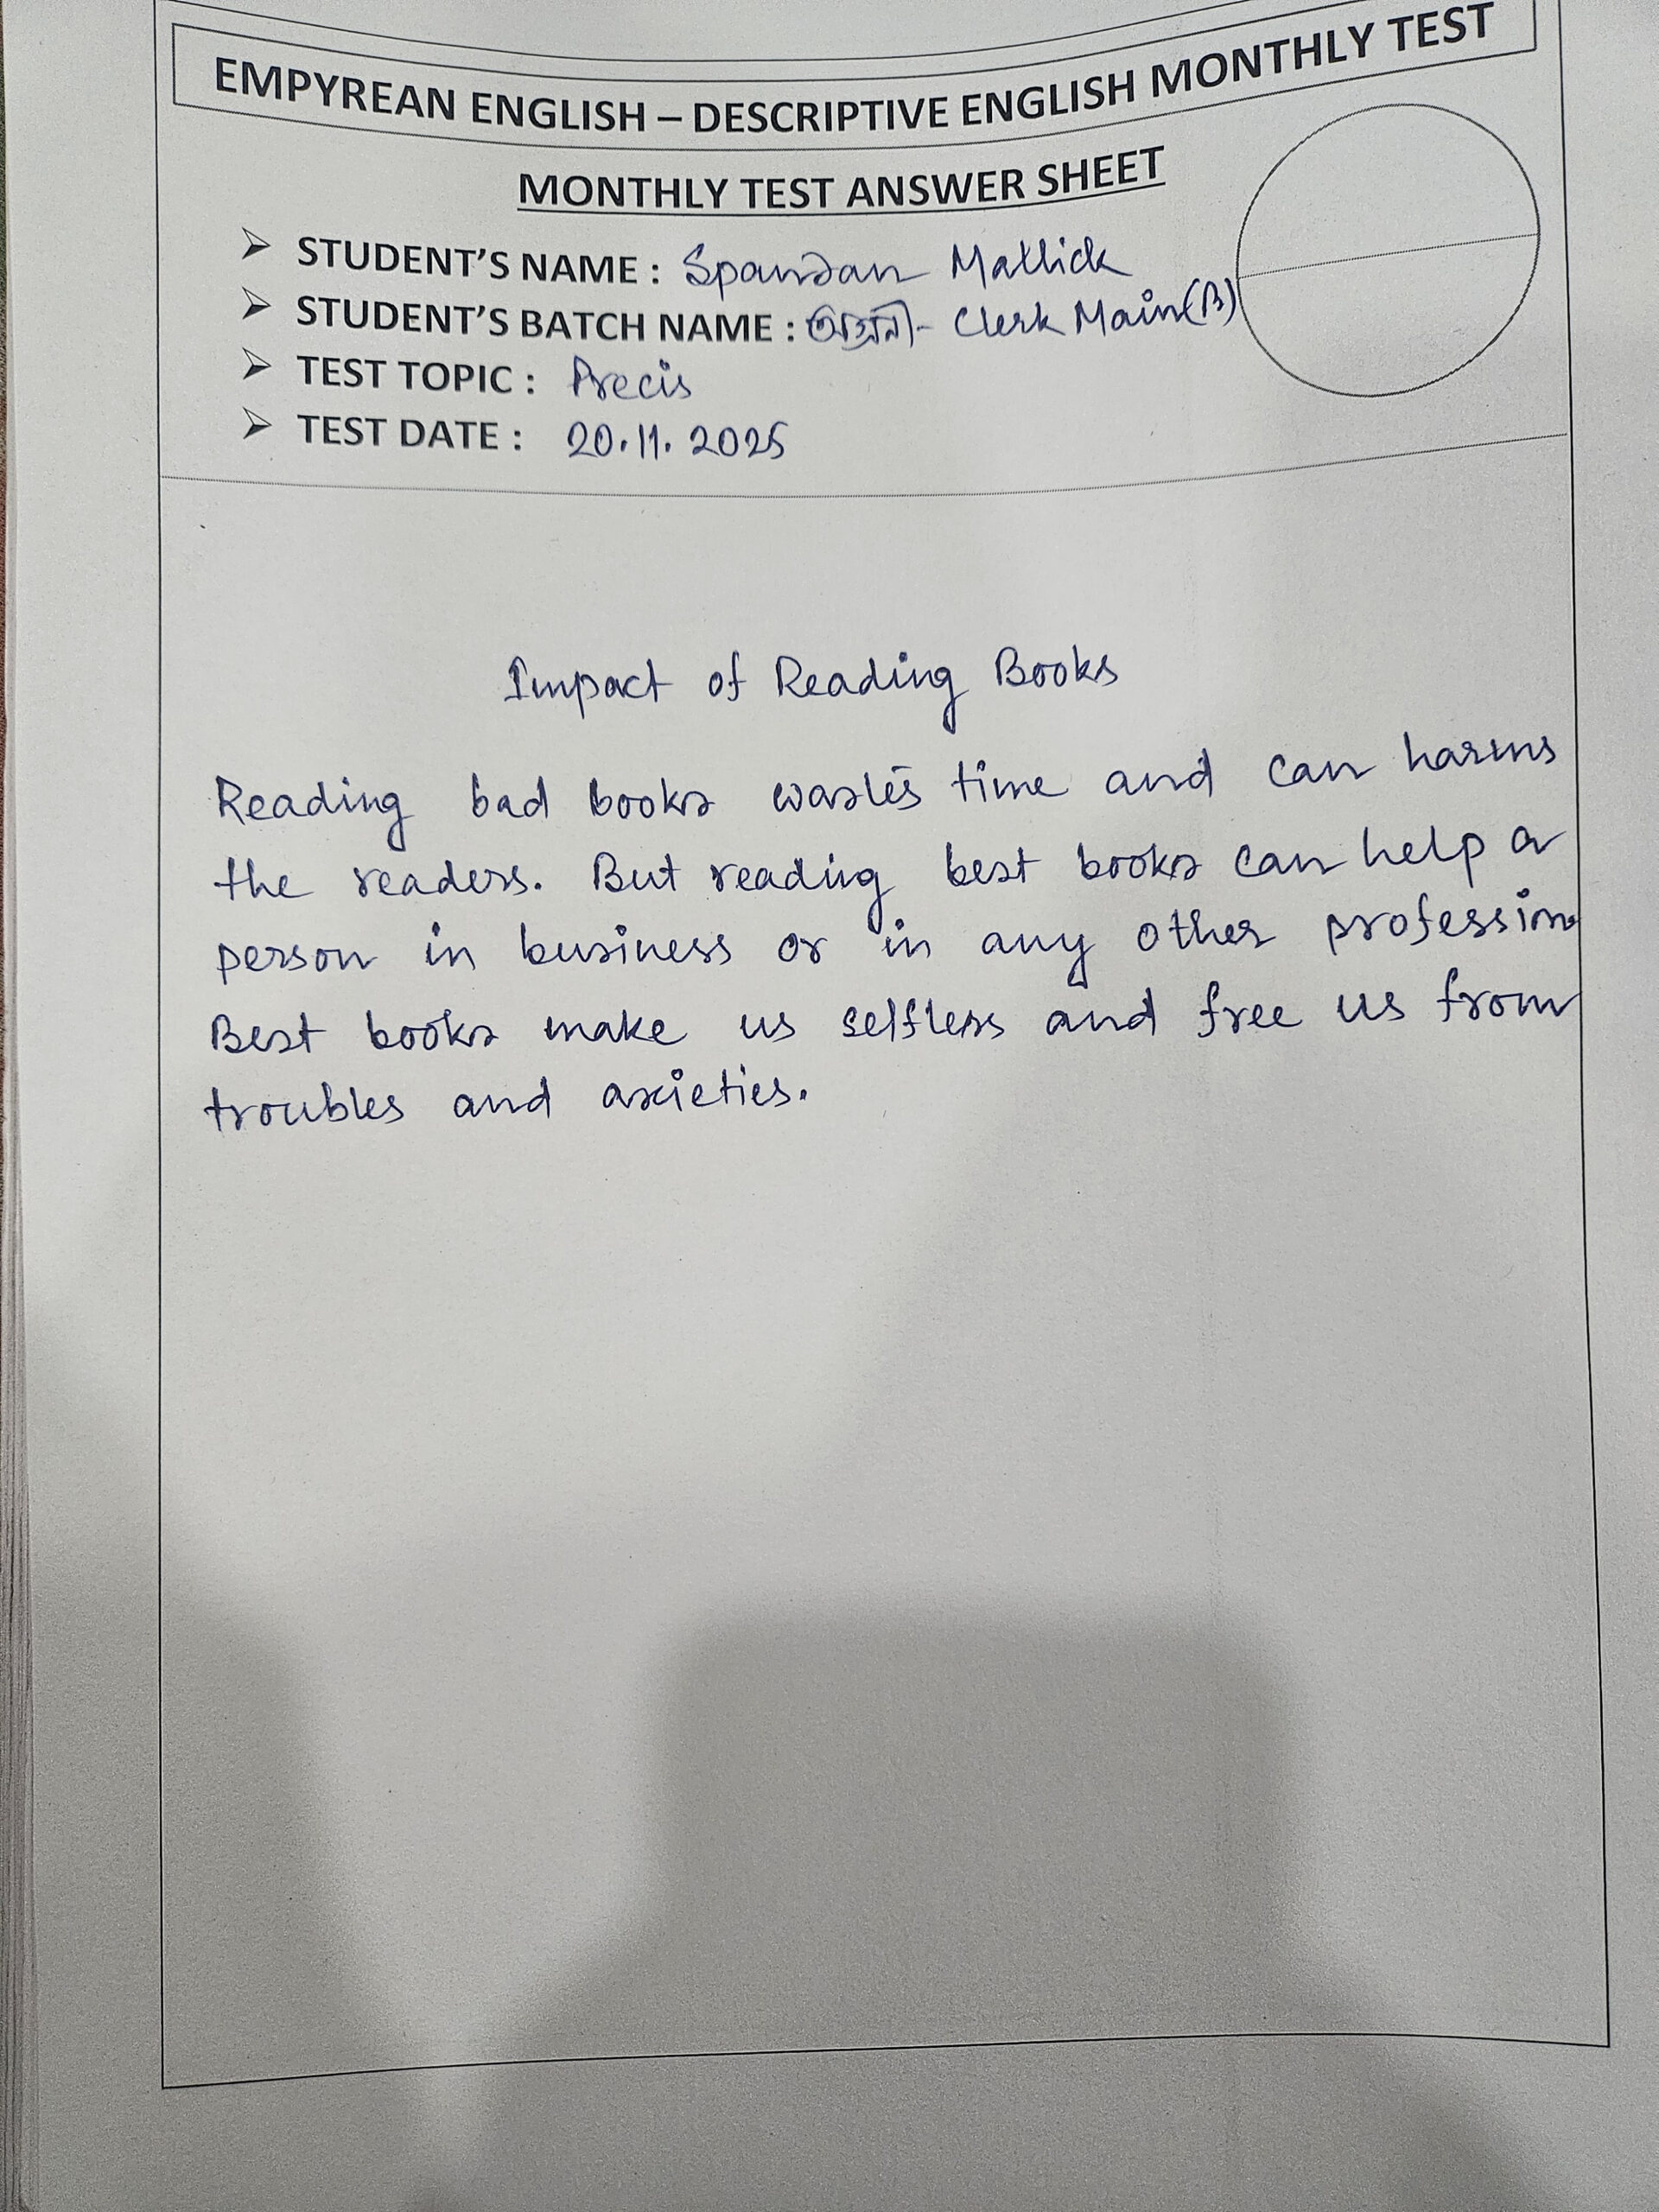 EMPYREAN ENGLISH – DESCRIPTIVE ENGLISH MONTHLY TEST
MONTHLY TEST ANSWER SHEET
➢ STUDENT'S NAME : Spandan Mallick
➢ STUDENT'S BATCH NAME : - Clerk Main(B)
➢ TEST TOPIC : Precis
➢ TEST DATE : 20.11.2025
Impact of Reading Books
Reading bad books wastes time and can harms
the readers. But reading best books can help a
person in business or in any other profession
Best books make us selfless and free us from
troubles and axieties.